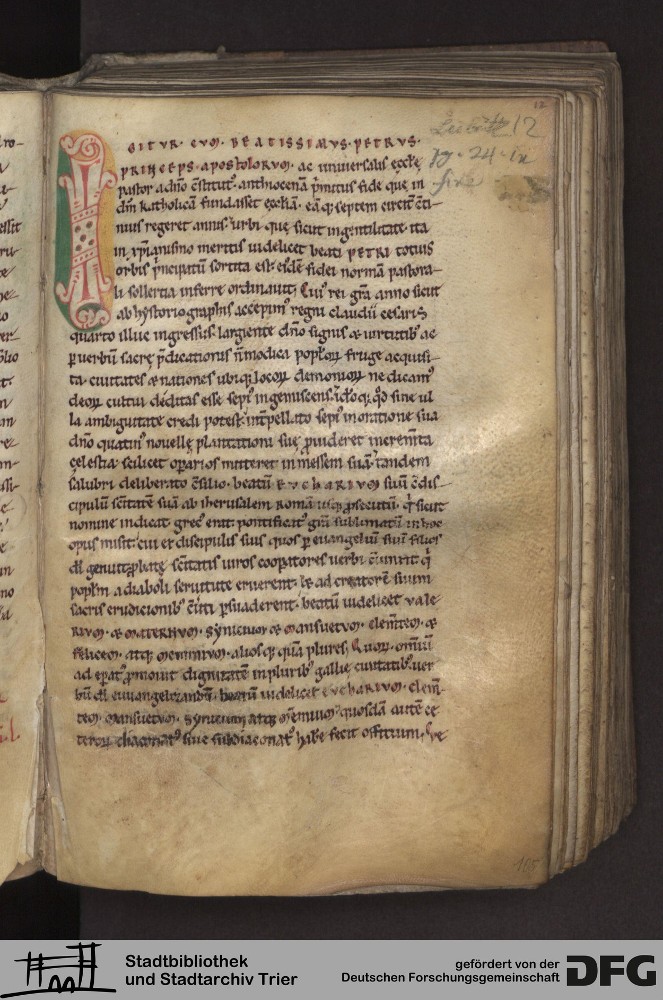 12
Leibitz 12
IGITVR CVM BEATISSIMVS PETRVS.
PRINCEPS APOSTOLORVM. ac uniuersalis ęcclę
pastor a dño c̄stitut᷒. anthiocenā p̄mitus fide que in
dm̄ katholicā fundasset ęcclīā. eāq; septem circit᷒ c̄ti-
nuis regeret annis. urbi que sicut in gentilitate ita
in xp̄ianismo meritis uidelicet beati PETRI totius
orbis p̄ncipatū sortita est. eidē fidei normā pastora-
li sollertia inferre ordinauit. Cui᷒ rei grā anno sicut
ab hystoriographis accepim᷒ regni claudii cesaris
quarto illuc ingressus. largiente dño signis & uirtutib᷒ ac
p uerbū sacrę p̄dicationis ñ modica popꝉoꝝ fruge acquisi-
ta. ciuitates & nationes ubiq; locoꝝ demonioꝝ ne dicam᷒
deoꝝ cultui deditas esse sepi᷒ ingemiscens. idoq; qd̄ sine ul
la ambiguitate credi potest. int̄pellato sepi᷒ in oratione sua
dño quatin᷒ nouellę plantationi suę puideret incrementa
cęlestia. scilicet oparios mitteret in messem suā. tandem
salubri deliberato c̄silio. beatū EVCHARIVM suū c̄dis-
cipulū sc̄itatē suā ab iherusalem Romā usq; psecutū. q̄ sicut
nomine indicat grec᷒ erat. pontificat᷒ grā sublimatū in hoc
opus misit. cui ex discipulis suis quos p euangeliū suū filios
dī genuit. pbatę sc̄itatis uiros coopatores uerbi c̄iunxit q̄
popꝉm a diaboli seruitute eruerent. & ad creatorē suum
sacris erudicionib᷒ c̄uti psuaderent. beatū uidelicet vale
RIVM. & MATERNVM. Synicium & Mansuetum. clem̄tem. &
felicem. atq; Memmium. aliosq; quā plures. Quoꝝ omniū
ad epat᷒ pmouit dignitatē in plurib᷒ gallię ciuitatib᷒ uer
bū dī euuangelizandū. beatū uidelicet EVCHARIVM. clem̄-
tem. Mansuetum. Synicium atq; Memmium. quosdā autē ce
teroꝝ diaconat᷒ siue subdiaconat᷒ habē fecit officium.
165
Stadtbibliothek
und Stadtarchiv Trier
gefördert von der
Deutschen Forschungsgemeinschaft
DFG